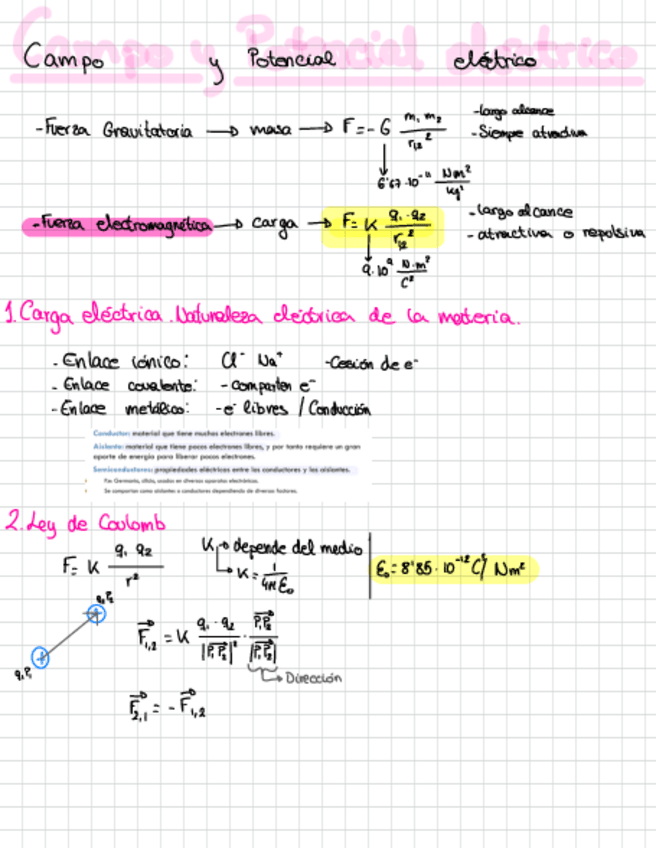 Campo y Potencial eléctrico
-Fuerza Gravitatoria → masa → F = - G m₁ m₂ / r₁₂²
-largo alcance
-Siempre atractiva
6'67·10⁻¹¹ Nm²/kg²
-Fuerza electromagnética → carga → F = K q₁·q₂ / r₁₂²
-largo alcance
-atractiva o repulsiva
9·10⁹ N·m²/C²
1. Carga eléctrica. Naturaleza eléctrica de la materia.
· Enlace iónico: Cl⁻ Na⁺ -Cesión de e⁻
· Enlace covalente: - comparten e⁻
· Enlace metálico: -e⁻ libres / Conducción
Conductor: material que tiene muchos electrones libres.
Aislante: material que tiene pocos electrones libres, y por tanto requiere un gran
aporte de energía para liberar pocos electrones.
Semiconductores: propiedades eléctricas entre los conductores y los aislantes.
Germanio, silicio, usados en diversos aparatos electrónicos.
Se comportan como aislantes o conductores dependiendo de diversos factores.
2. Ley de Coulomb
F = K q₁ q₂ / r²
K → depende del medio
K = 1 / 4πε₀
ε₀ = 8'85·10⁻¹² C²/Nm²
q₂P₂
q₁P₁
F⃗₁,₂ = K q₁·q₂ / |P₁P₂|² · P₁P₂ / |P₁P₂|
Dirección
F⃗₂,₁ = - F⃗₁,₂